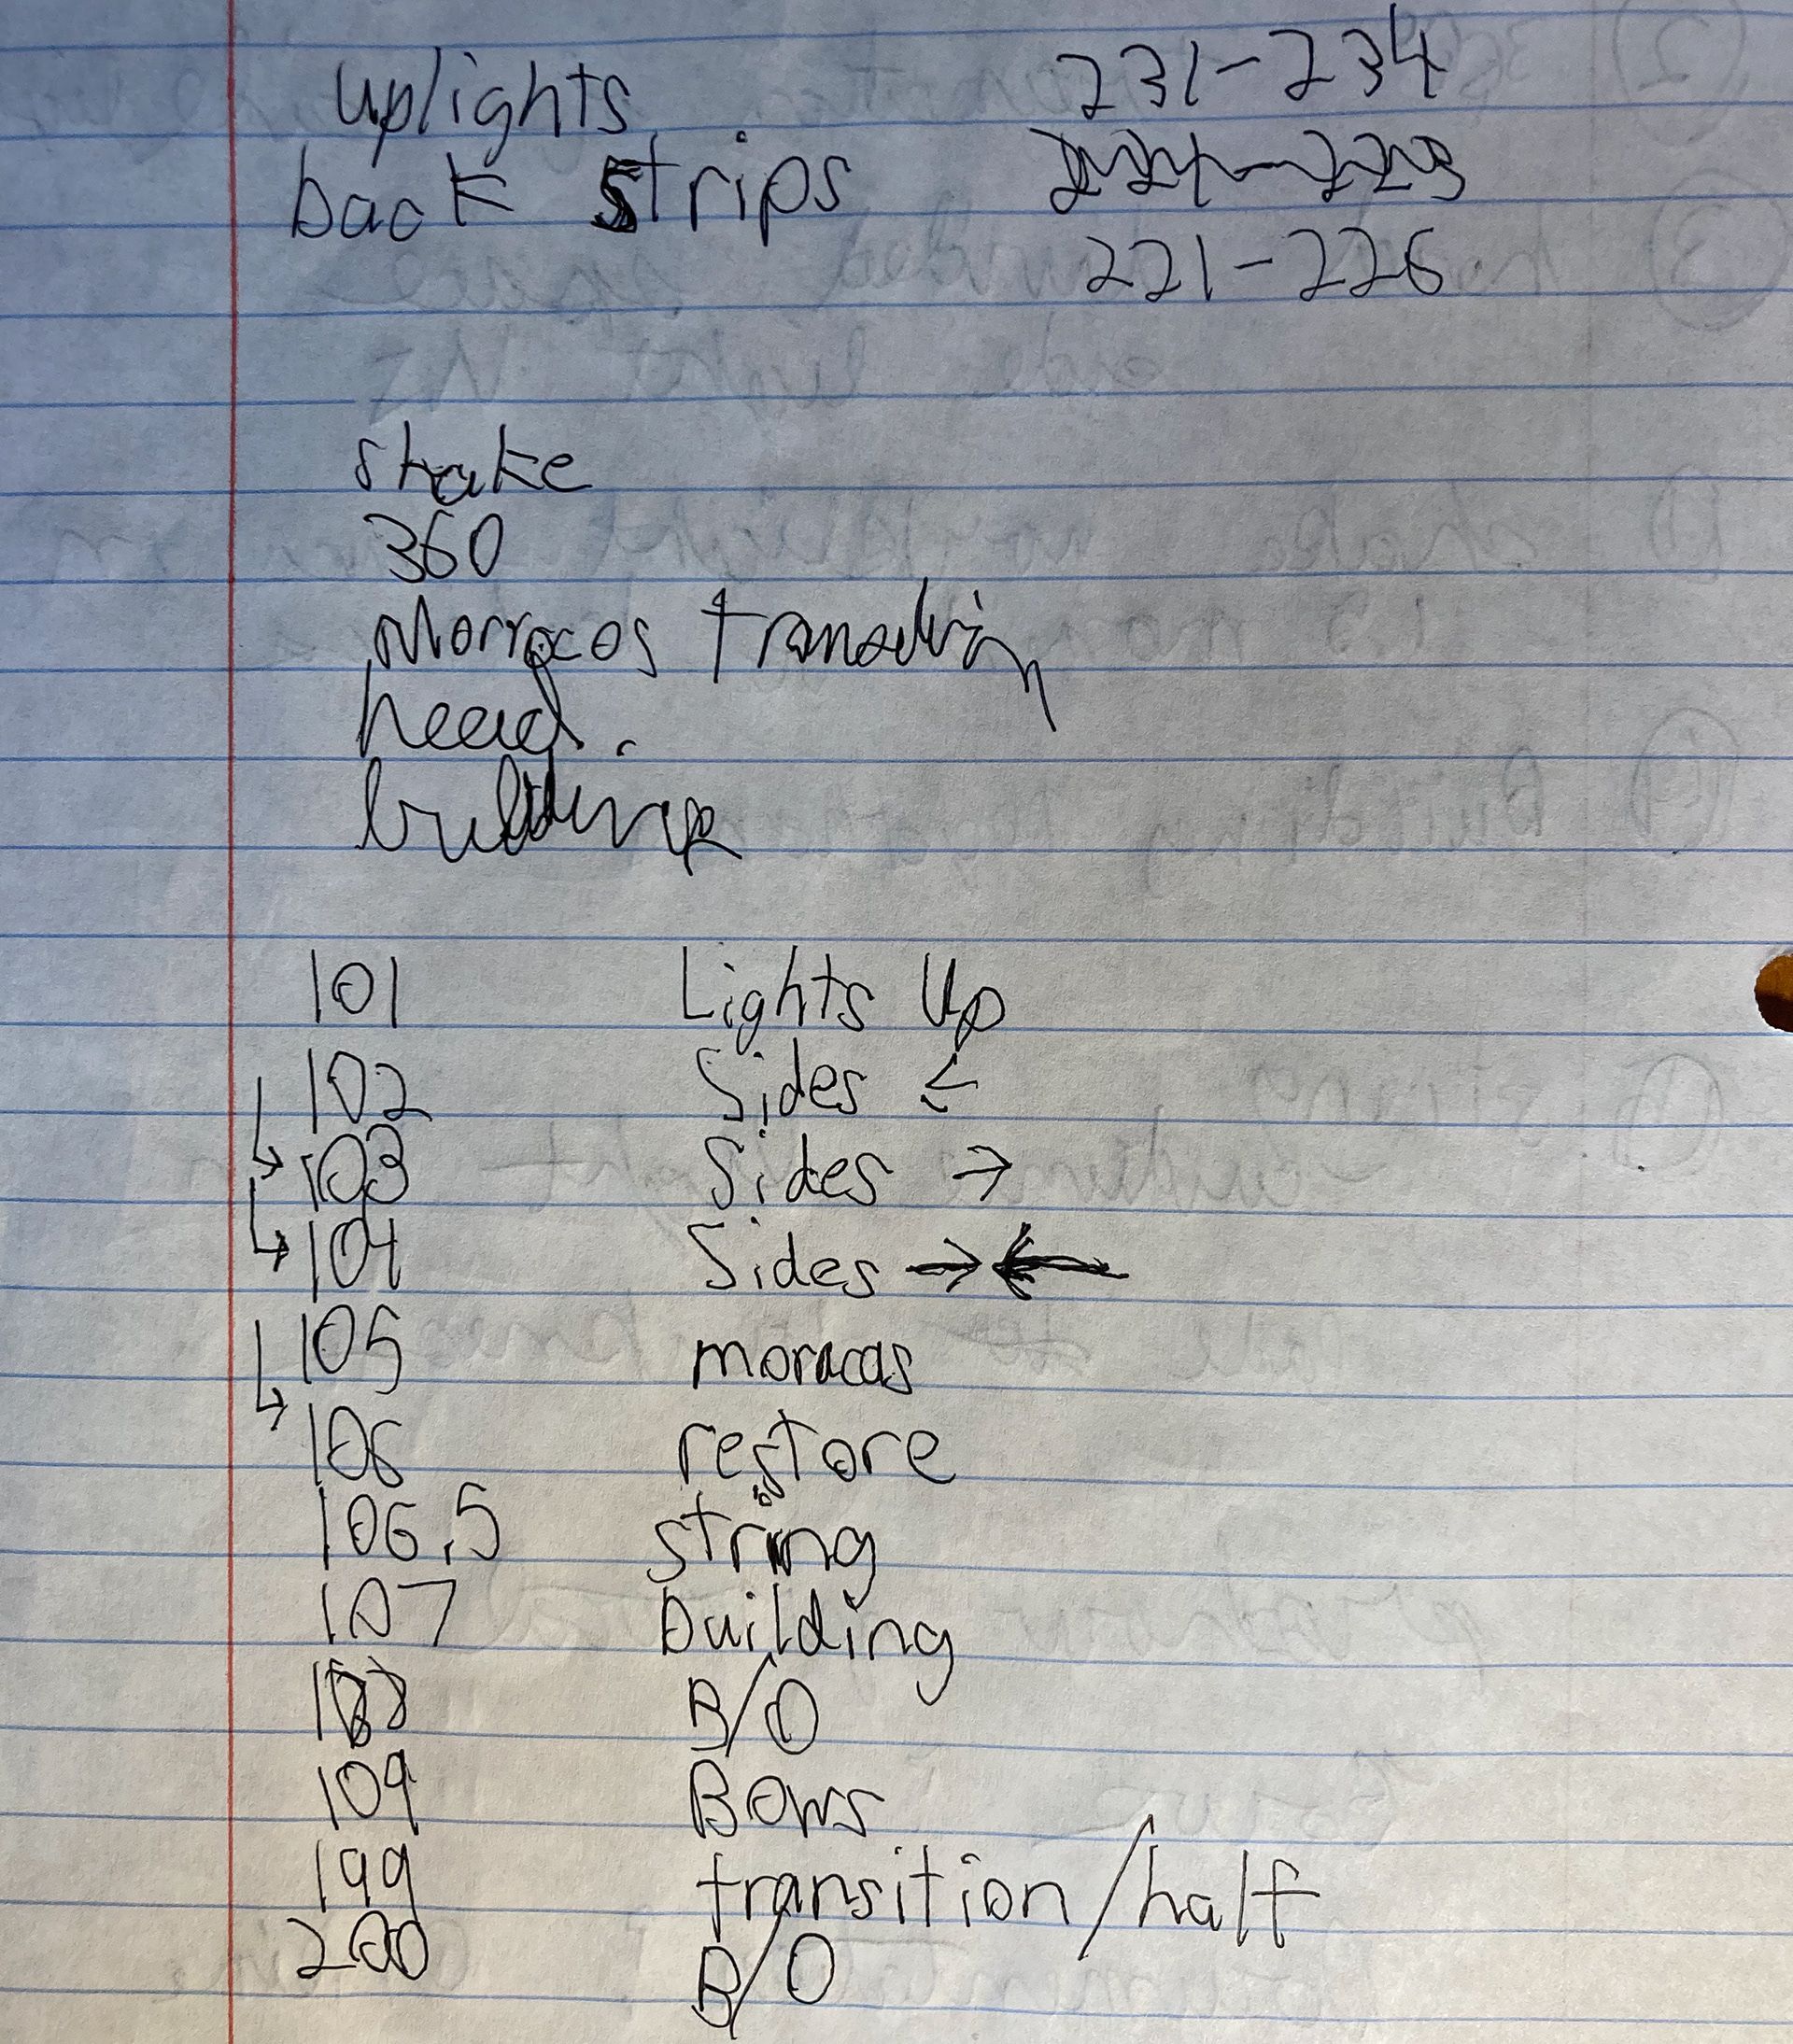 uplights 231-234
back strips
221-226
shake
360
Morrocos
head.
building
101 Lights Up
102 Sides ←
↳ 103 Sides →
↳ 104 Sides →←
105 moracas
↳ 106 restore
106.5 string
107 building
108 B/O
109 Bows
199 transition/half
200 B/O